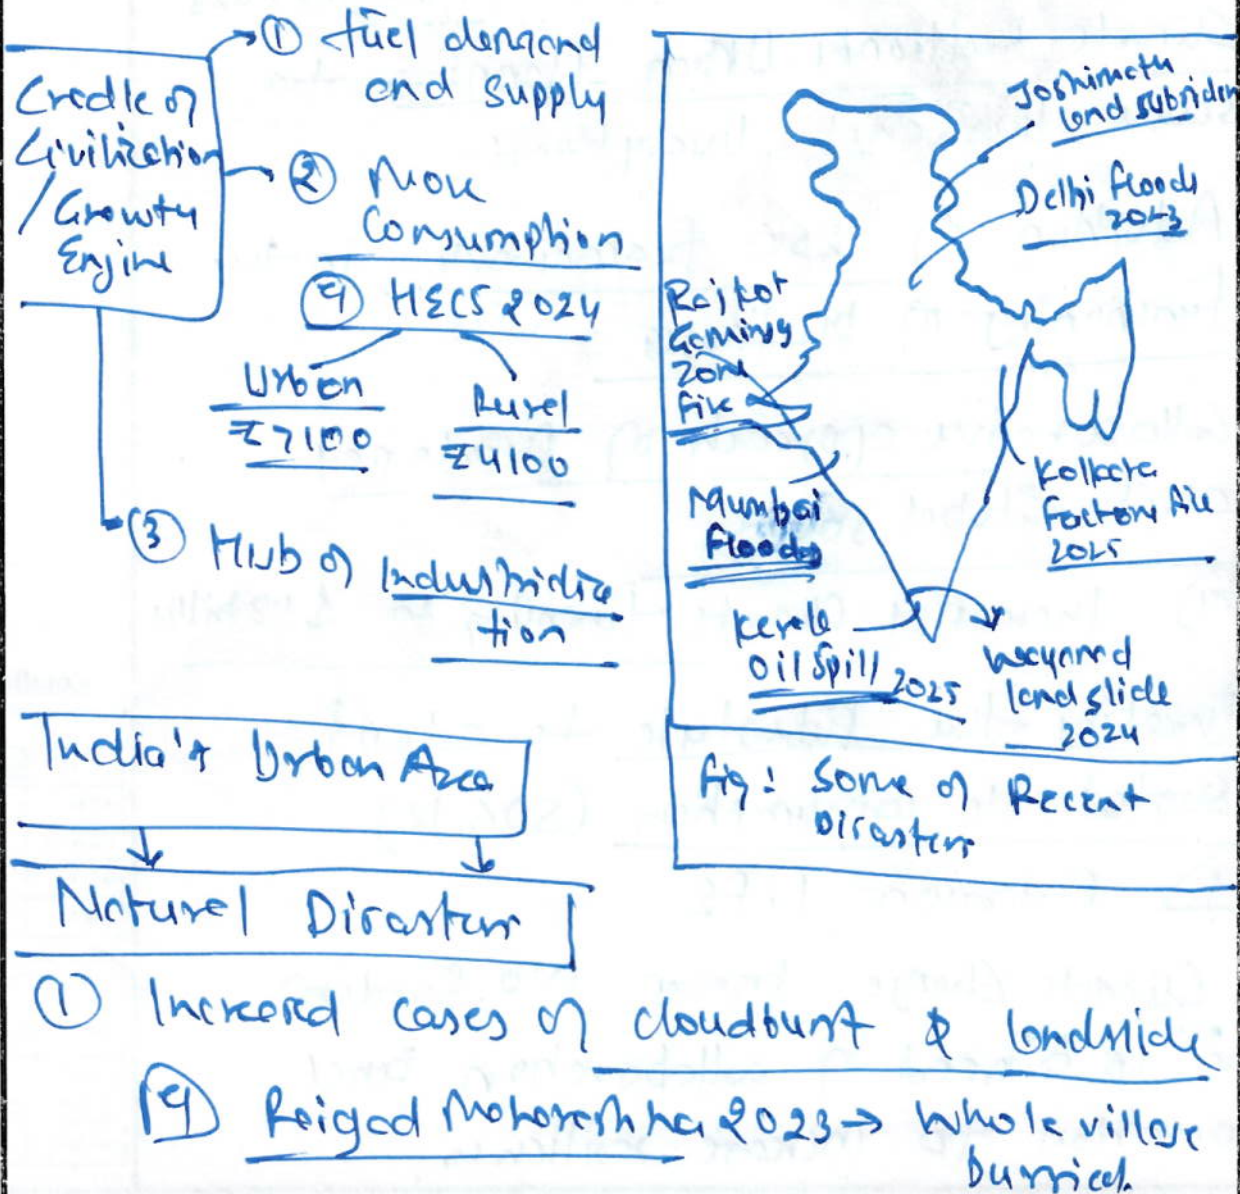 Credle of
Civilization
/ Growth
Engine
① fuel demand
and supply
② More
Consumption
eg HECS 2024
Urban
₹7100
Rurel
₹4100
③ Hub of Industrializa
tion
Joshimath
land subsiden
Delhi floods
2023
Rajkot
Gaming
Zone
fire
Mumbai
Floods
Kerele
Oil Spill 2025
Kolkata
factory fire
2025
Wayanad
landslide
2024
fig: Some of Recent
Disasters
India's Urban Area
Naturel Disasters
① Increased cases of cloudburst & landslide
eg Raigad Maharashtra 2023 → Whole village
burried.